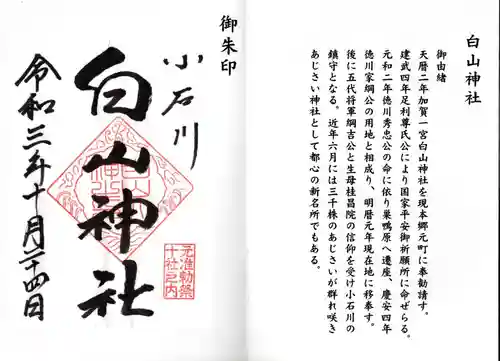 白山神社
御由緒
天暦二年加賀一宮白山神社を現本郷元町に奉勧請す。
建武四年足利尊氏公により国家平安御祈願所に命ぜらる。
元和二年徳川秀忠公の命に依り巣鴨原へ遷座、慶安四年
徳川家綱公の用地と相成り、明暦元年現在地に移奉す。
後に五代将軍綱吉公と生母桂昌院の信仰を受け小石川の
鎮守となる。近年六月には三千株のあじさいが群れ咲き
あじさい神社として都心の新名所でもある。
御朱印
小石川
白山神社
令和三年十月二十四日
元准勅祭
十社之内